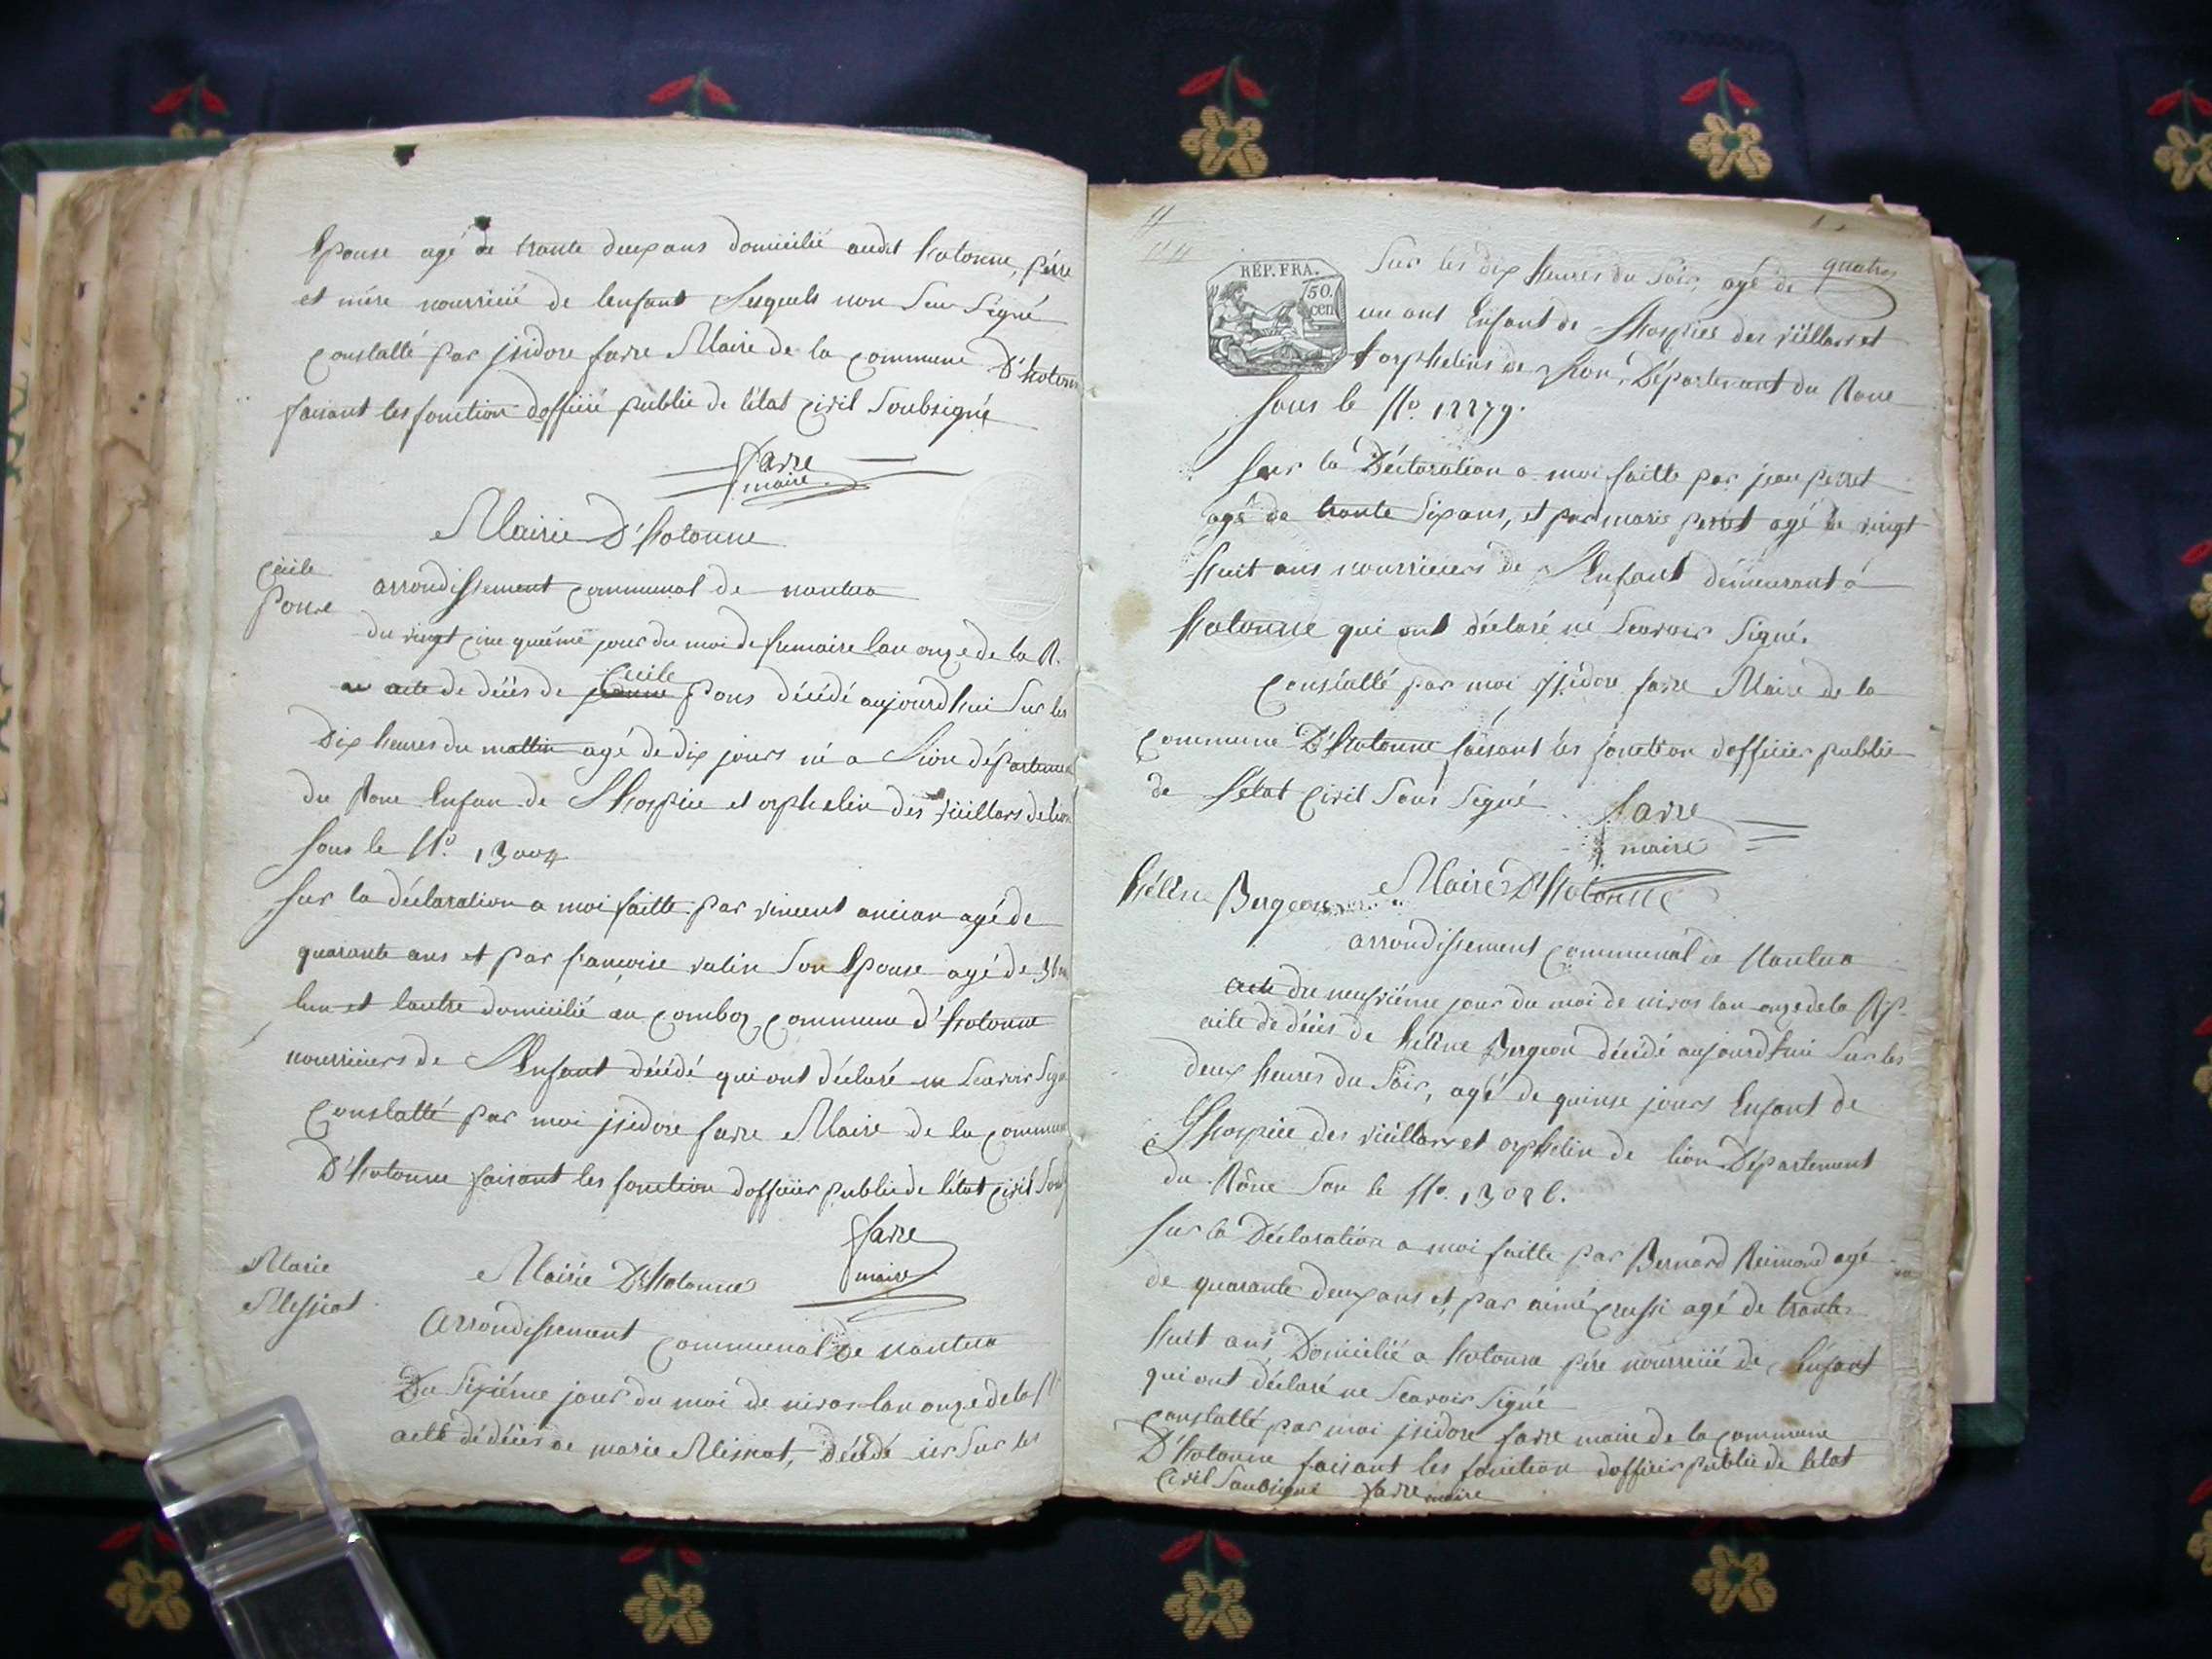 Epouse agé de trante deux ans domicilié audit hotonne, père
et mère nourricié de lenfant lesquels non seu signé
constatté par jsidore favre Maire de la commune D'hotonne
faisant les fonction dofficié public de létat civil soubsigné
favre
maire
Mairie D'hotonne
Cécile
Pons
arrondissement communal de nantua
du vingt cinquiéme jour du moi de frimaire lan onze de la R.
acte de décès de Cecile pons décédé aujourdhui sur les
Dix heures du mattin agé de dix jours né a Lion département
du Rone Enfan de Lhospice et orphelin des viellars de lion
sous le No. 13004
sur la déclaration a moi faitte par vincent ancian agé de
quarante ans et par francoise valin son Epouse agé de 36 ans
lun et lautre domicilié au comboz, commune d'hotonne
nourriciers de LEnfant décédé qui ont déclaré ne scavoir signé
constatté par moi jsidore favre Maire de la commune
D'hotonne faisant les fonction dofficier public de létat civil soub
favre
maire
Marie
Messiat
Mairie D'hotonne
arrondissement communal de nantua
Du sixiéme jour du moi de nivos lan onze de la R
acte de décès de marie Messiat, Décédé ier sur les
quatre
RÉP. FRA.
50.
cen
sur les dix heures du soir, agé de
un ans Enfant de Lhospice des viellars et
orphelins de Lion, Département du Rone
sous le No. 12279.
sur la Déclaration a moi faitte par jean perret
agé de trante six ans, et par marie perret agé de vingt
huit ans nourriciers de LEnfant démeurant à
hotonne qui ont déclaré ne scavoir signé.
Constatté par moi jsidore favre Maire de la
commune D'hotonne faisant les fonction dofficier public
de létat civil sous signé
favre
maire
Hélène Bergeon
Mairie D'hotonne
arrondissement communal de Nantua
acte du neufviéme jour du moi de nivos lan onze de la Rp.
acte de décès de hélène Bergeon décédé aujourdhui sur les
deux heures du soir, agé de quinse jours Enfant de
Lhospice des viellars et orphelin de lion Département
du Rône sou le No.
sur la Déclaration a moi faitte par Bernard Reimond agé
de quarante deux ans et par aimé agé de trante
huit ans Domicilié a hotonne père nourricié de lenfant
qui ont déclaré ne scavoir signé
constatté par moi jsidore favre maire de la commune
D'hotonne faisant les fonction dofficier public de létat
civil soubsigné favre maire